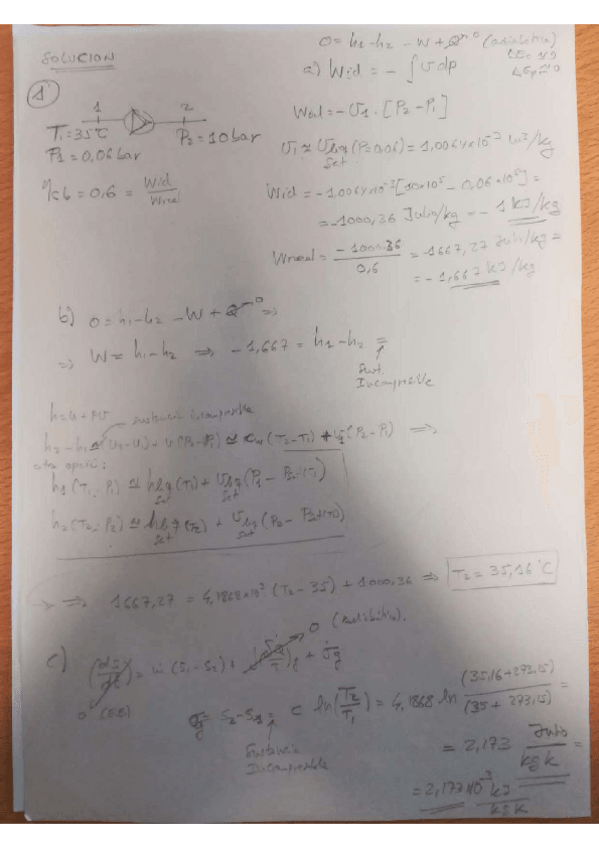 SOLUCION
1
0 = h1 - h2 - W + Q→0 (adiabática)
ΔEc ≈ 0
ΔEp ≈ 0
a) Wid = - ∫ v dp
1 2
T1 = 35°C
P1 = 0,06 bar
P2 = 10 bar
ηcb = 0,6 = Wid / Wreal
Wid = - v1 · [P2 - P1]
v1 ≈ vliq sat (P=0,06) = 1,0064×10^-3 m³/kg
Wid = -1,0064×10^-3 [10×10^5 - 0,06×10^5] =
= -1000,36 Julio/kg = - 1 kJ/kg
Wreal = -1000.36 / 0,6 = -1667,27 Julio/kg =
= - 1,667 kJ/kg
b) 0 = h1 - h2 - W + Q→0 ⇒
⇒ W = h1 - h2 ⇒ - 1,667 = h1 - h2 =
Sust.
Incompresible
sustancia incompresible
h2 - h1 ≅ (u2 - u1) + v (P2 - P1) ≅ cw (T2 - T1) + v1 (P2 - P1) ⇒
otra opción:
h1 (T1, P1) ≅ hliq sat (T1) + vliq sat (P1 - Psat(T1))
h2 (T2, P2) ≅ hliq sat (T2) + vliq sat (P2 - Psat(T2))
⇒ 1667,27 = 4,1868×10³ (T2 - 35) + 1000,36 ⇒ T2 = 35,16 °C
c) (dS/dt) = ṁ (s1 - s2) + (Q̇/T)f + σ̇g
0 (adiabática).
0 (EE)
σg = s2 - s1 = c ln (T2/T1) = 4,1868 ln (35,16 + 273,15) / (35 + 273,15) =
Sustancia
Incompresible
= 2,173 Julio / kg K =
= 2,173×10^-3 kJ / kg K